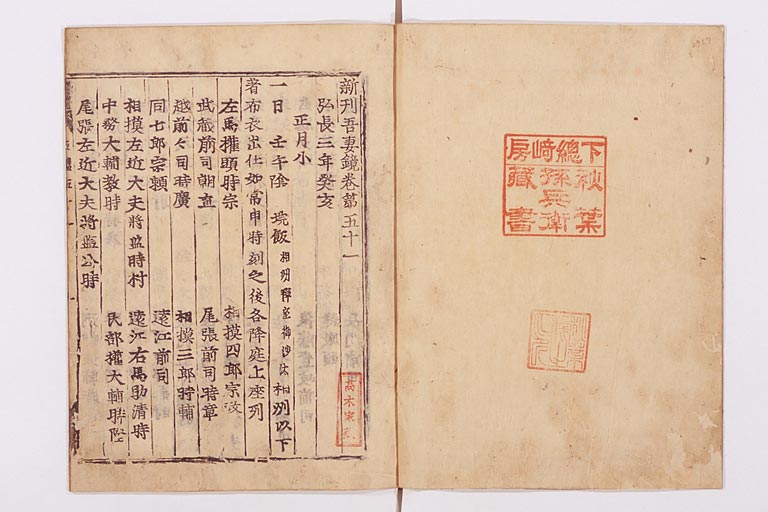 下總崎房
秋葉
孫兵衛
藏書
新刊吾妻鏡卷第五十一
弘長三年癸亥
正月小
一日 壬午陰 埦飯 相州禪室御沙汰 相州以下
著布衣出仕如常申時刻之後各降庭上座列
左馬權頭時宗 相摸四郎宗政
武藏前司朝直 尾張前司時章
越前々司時廣 相摸三郎時輔
同七郎宗頼 遠江前司
相摸左近大夫將監時村 遠江右馬助清時
中務大輔教時 民部權大輔時隆
尾張左近大夫將監公時
高木家藏